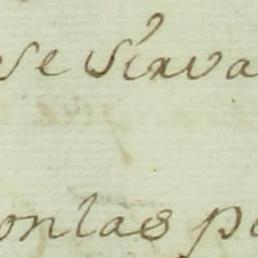 se sirva
con las pa